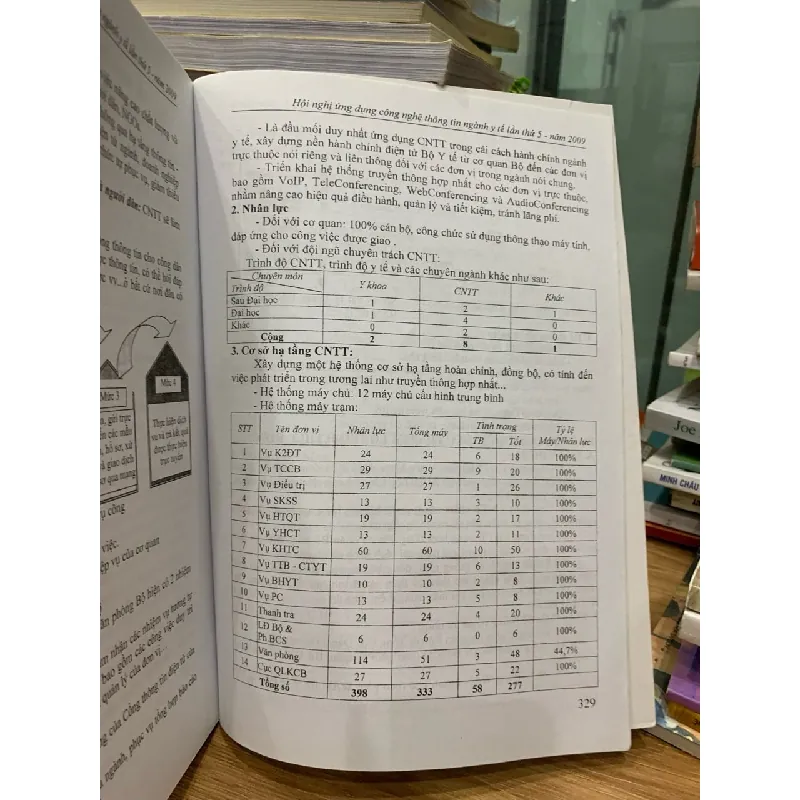 Hội nghị ứng dụng công nghệ thông tin ngành y tế lần thứ 5 - năm 2009
- Là đầu mối duy nhất ứng dụng CNTT trong cải cách hành chính ngành
y tế, xây dựng nền hành chính điện tử Bộ Y tế từ cơ quan Bộ đến các đơn vị
trực thuộc nói riêng và liên thông đối với các đơn vị trong ngành nói chung.
- Triển khai hệ thống truyền thông hợp nhất cho các đơn vị trực thuộc,
bao gồm VoIP, TeleConferencing, WebConferencing và AudioConferencing
nhằm nâng cao hiệu quả điều hành, quản lý và tiết kiệm, tránh lãng phí.
2. Nhân lực
- Đối với cơ quan: 100% cán bộ, công chức sử dụng thông thạo máy tính,
đáp ứng cho công việc được giao .
- Đối với đội ngũ chuyên trách CNTT:
Trình độ CNTT, trình độ y tế và các chuyên ngành khác như sau:
Chuyên môn Y khoa CNTT Khác
Trình độ
Sau Đại học 1 2 1
Đại học 1 4 0
Khác 0 2 0
Cộng 2 8 1
3. Cơ sở hạ tầng CNTT:
Xây dựng một hệ thống cơ sở hạ tầng hoàn chỉnh, đồng bộ, có tính đến
việc phát triển trong tương lai như truyền thông hợp nhất...
- Hệ thống máy chủ: 12 máy chủ cấu hình trung bình
- Hệ thống máy trạm:
STT Tên đơn vị Nhân lực Tổng máy Tình trạng Tỷ lệ
TB Tốt Máy/Nhân lực
1 Vụ K2ĐT 24 24 6 18 100%
2 Vụ TCCB 29 29 9 20 100%
3 Vụ Điều trị 27 27 1 26 100%
4 Vụ SKSS 13 13 3 10 100%
5 Vụ HTQT 19 19 2 17 100%
6 Vụ YHCT 13 13 2 11 100%
7 Vụ KHTC 60 60 10 50 100%
8 Vụ TTB - CTYT 19 19 6 13 100%
9 Vụ BHYT 10 10 2 8 100%
10 Vụ PC 13 13 5 8 100%
11 Thanh tra 24 24 4 20 100%
12 LĐ Bộ &
Ph.BCS 6 6 0 6 100%
13 Văn phòng 114 51 3 48 44,7%
14 Cục QLKCB 27 27 5 22 100%
Tổng số 398 333 58 277
329
Mức 3
Mức 4
Thực hiện dịch
vụ và trả kết quả
được thực hiện
trực tuyến
Joe
MINH CHÂU